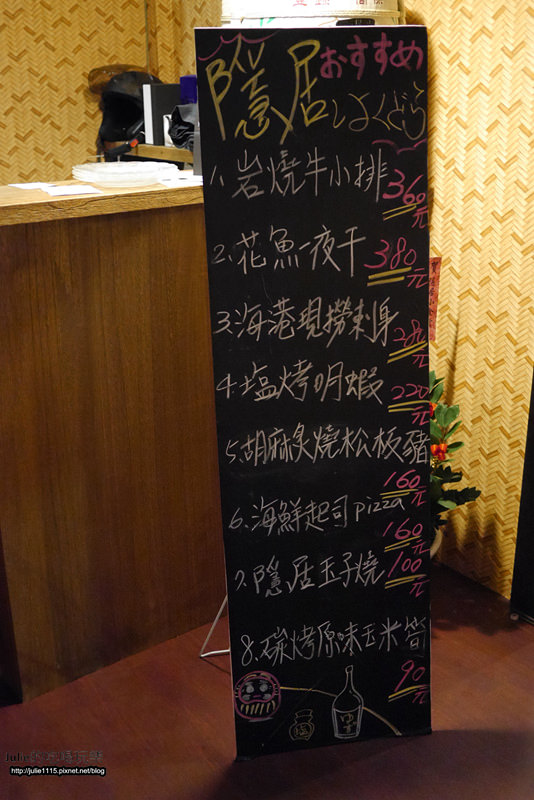 おすすめ
隱居しょくどう
1.岩燒牛小排 360元
2.花魚一夜干 380元
3.海港現撈刺身 280元
4.塩烤明蝦 220元
5.胡麻炙燒松板豬 160元
6.海鮮起司pizza 160元
7.隱居玉子燒 100元
8.碳烤原味玉米筍 90元
ゆず
http://julie1115.pixnet.net/blog